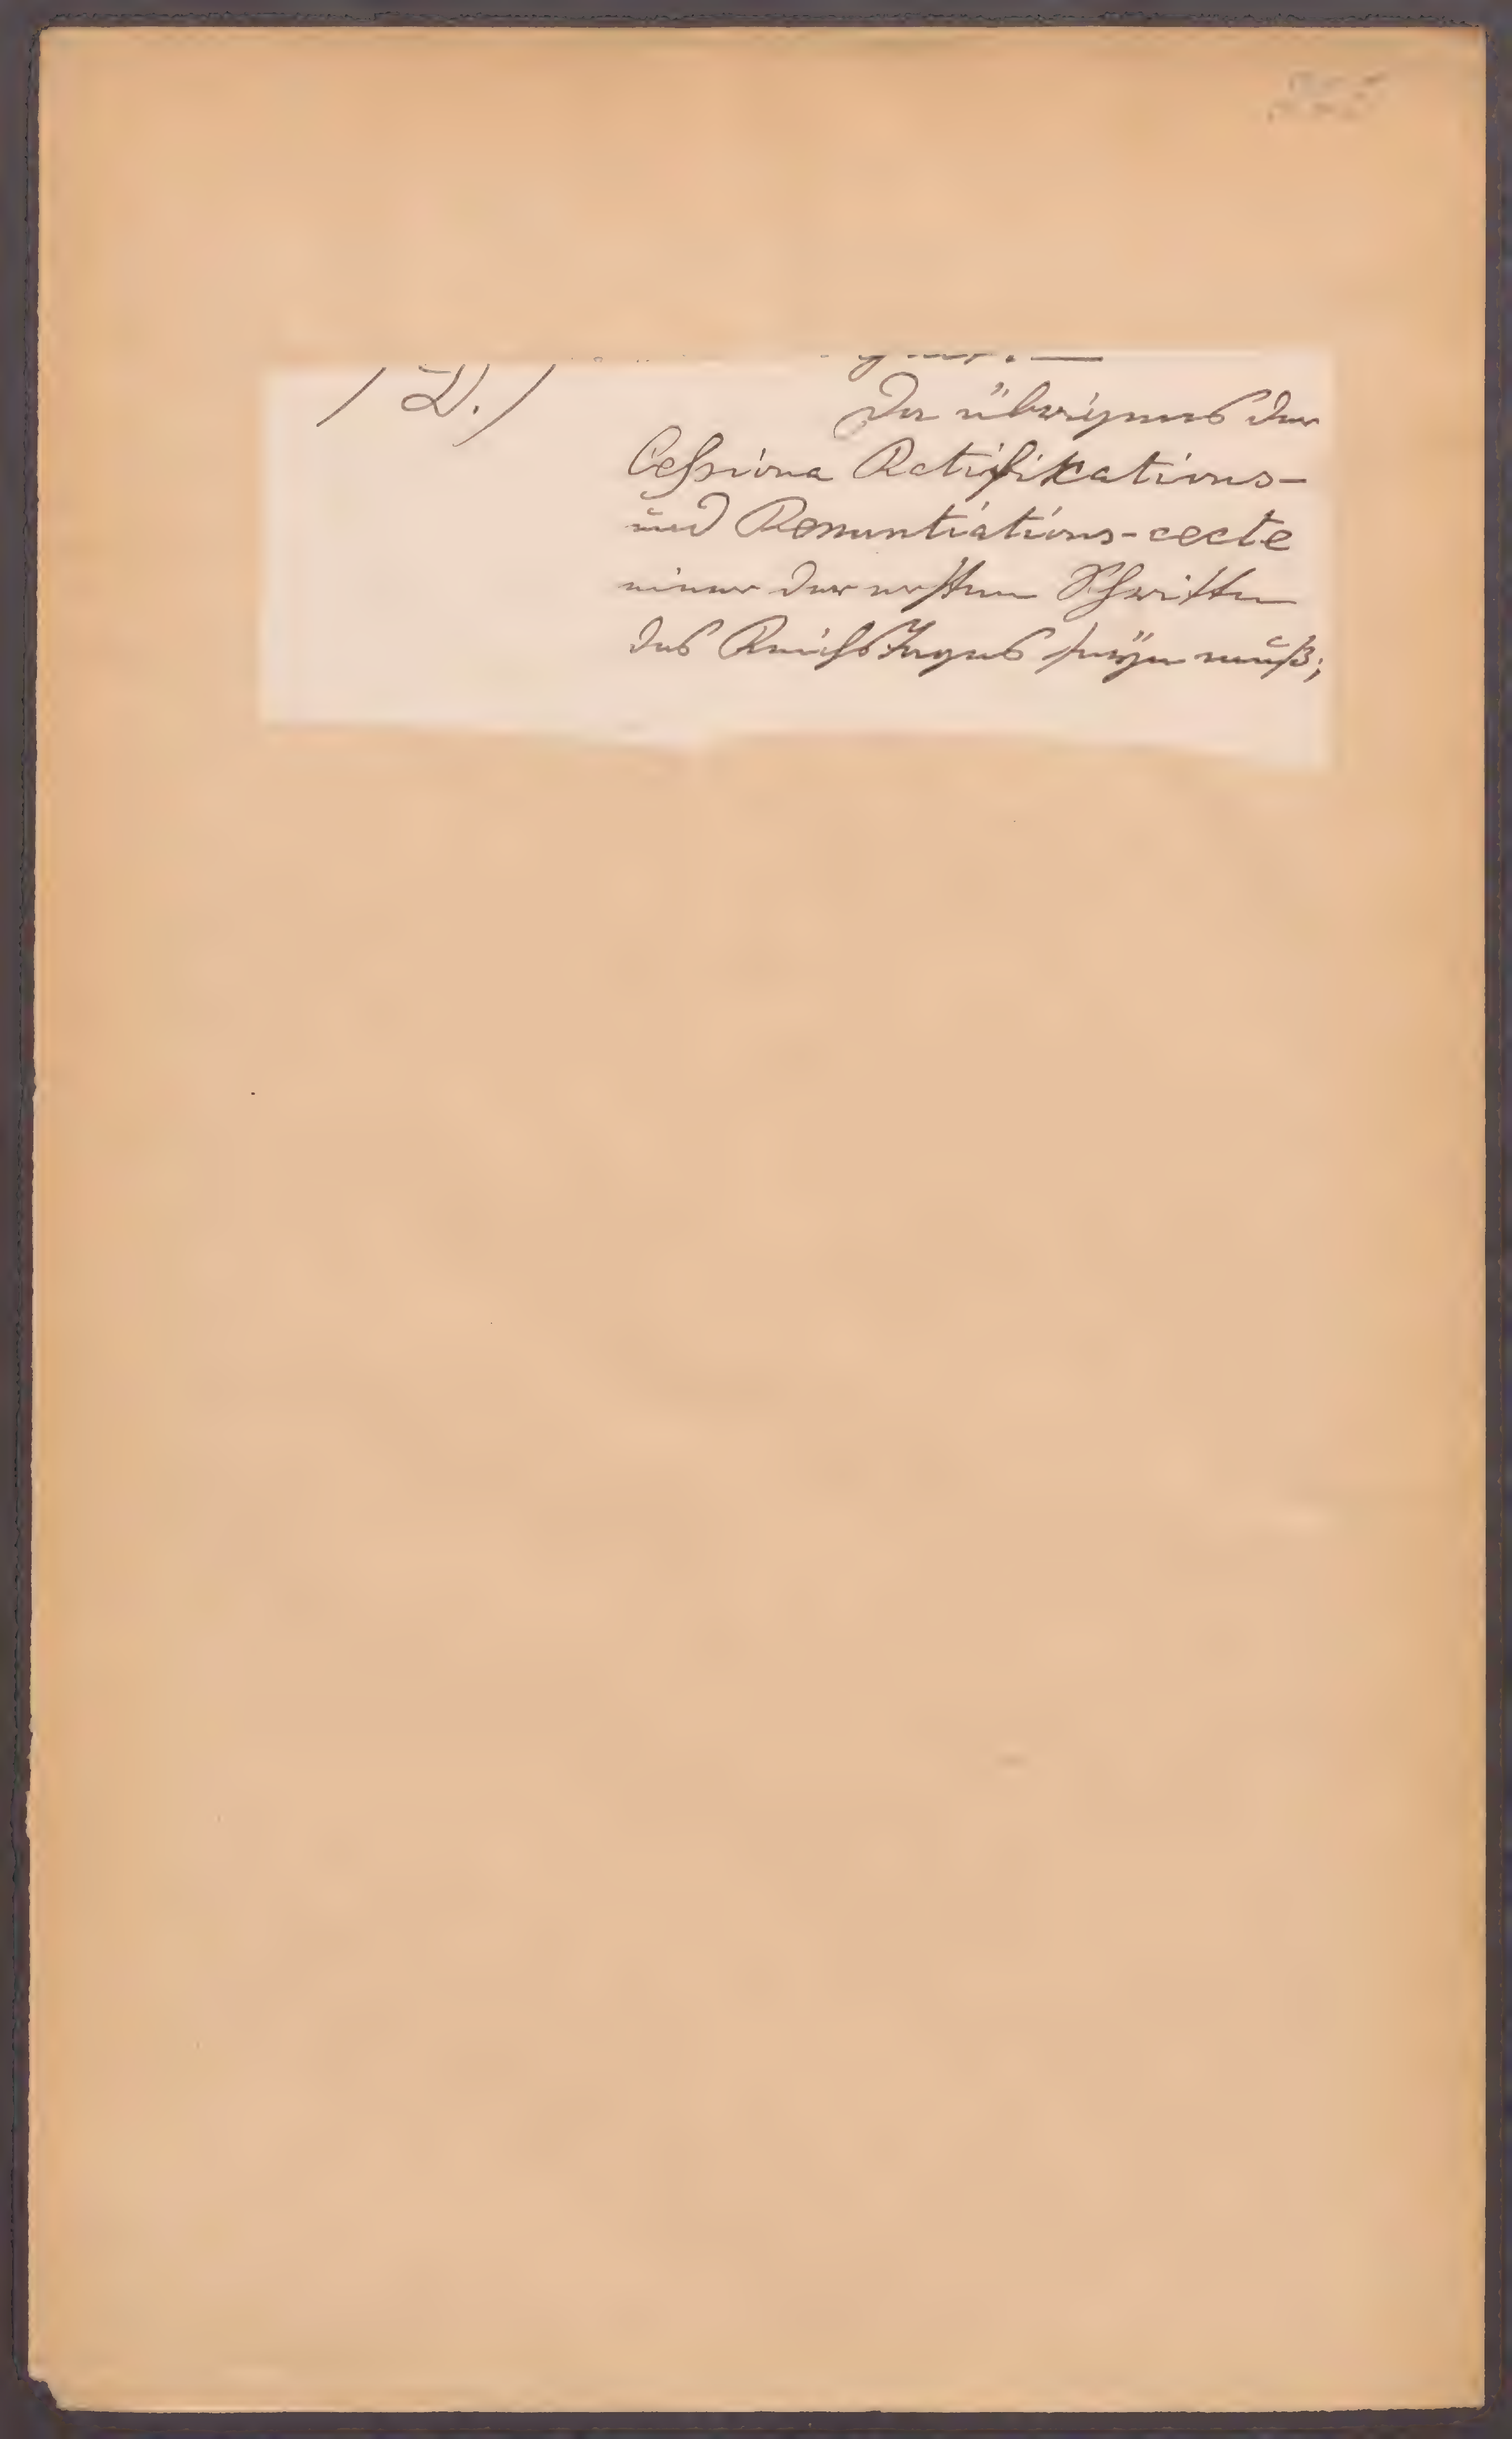 / D. /
Da übrigens der
Cessions Ratifikations-
und Renuntiations-acte
einer der ersten Schritten
des Reichstages seÿn muß;